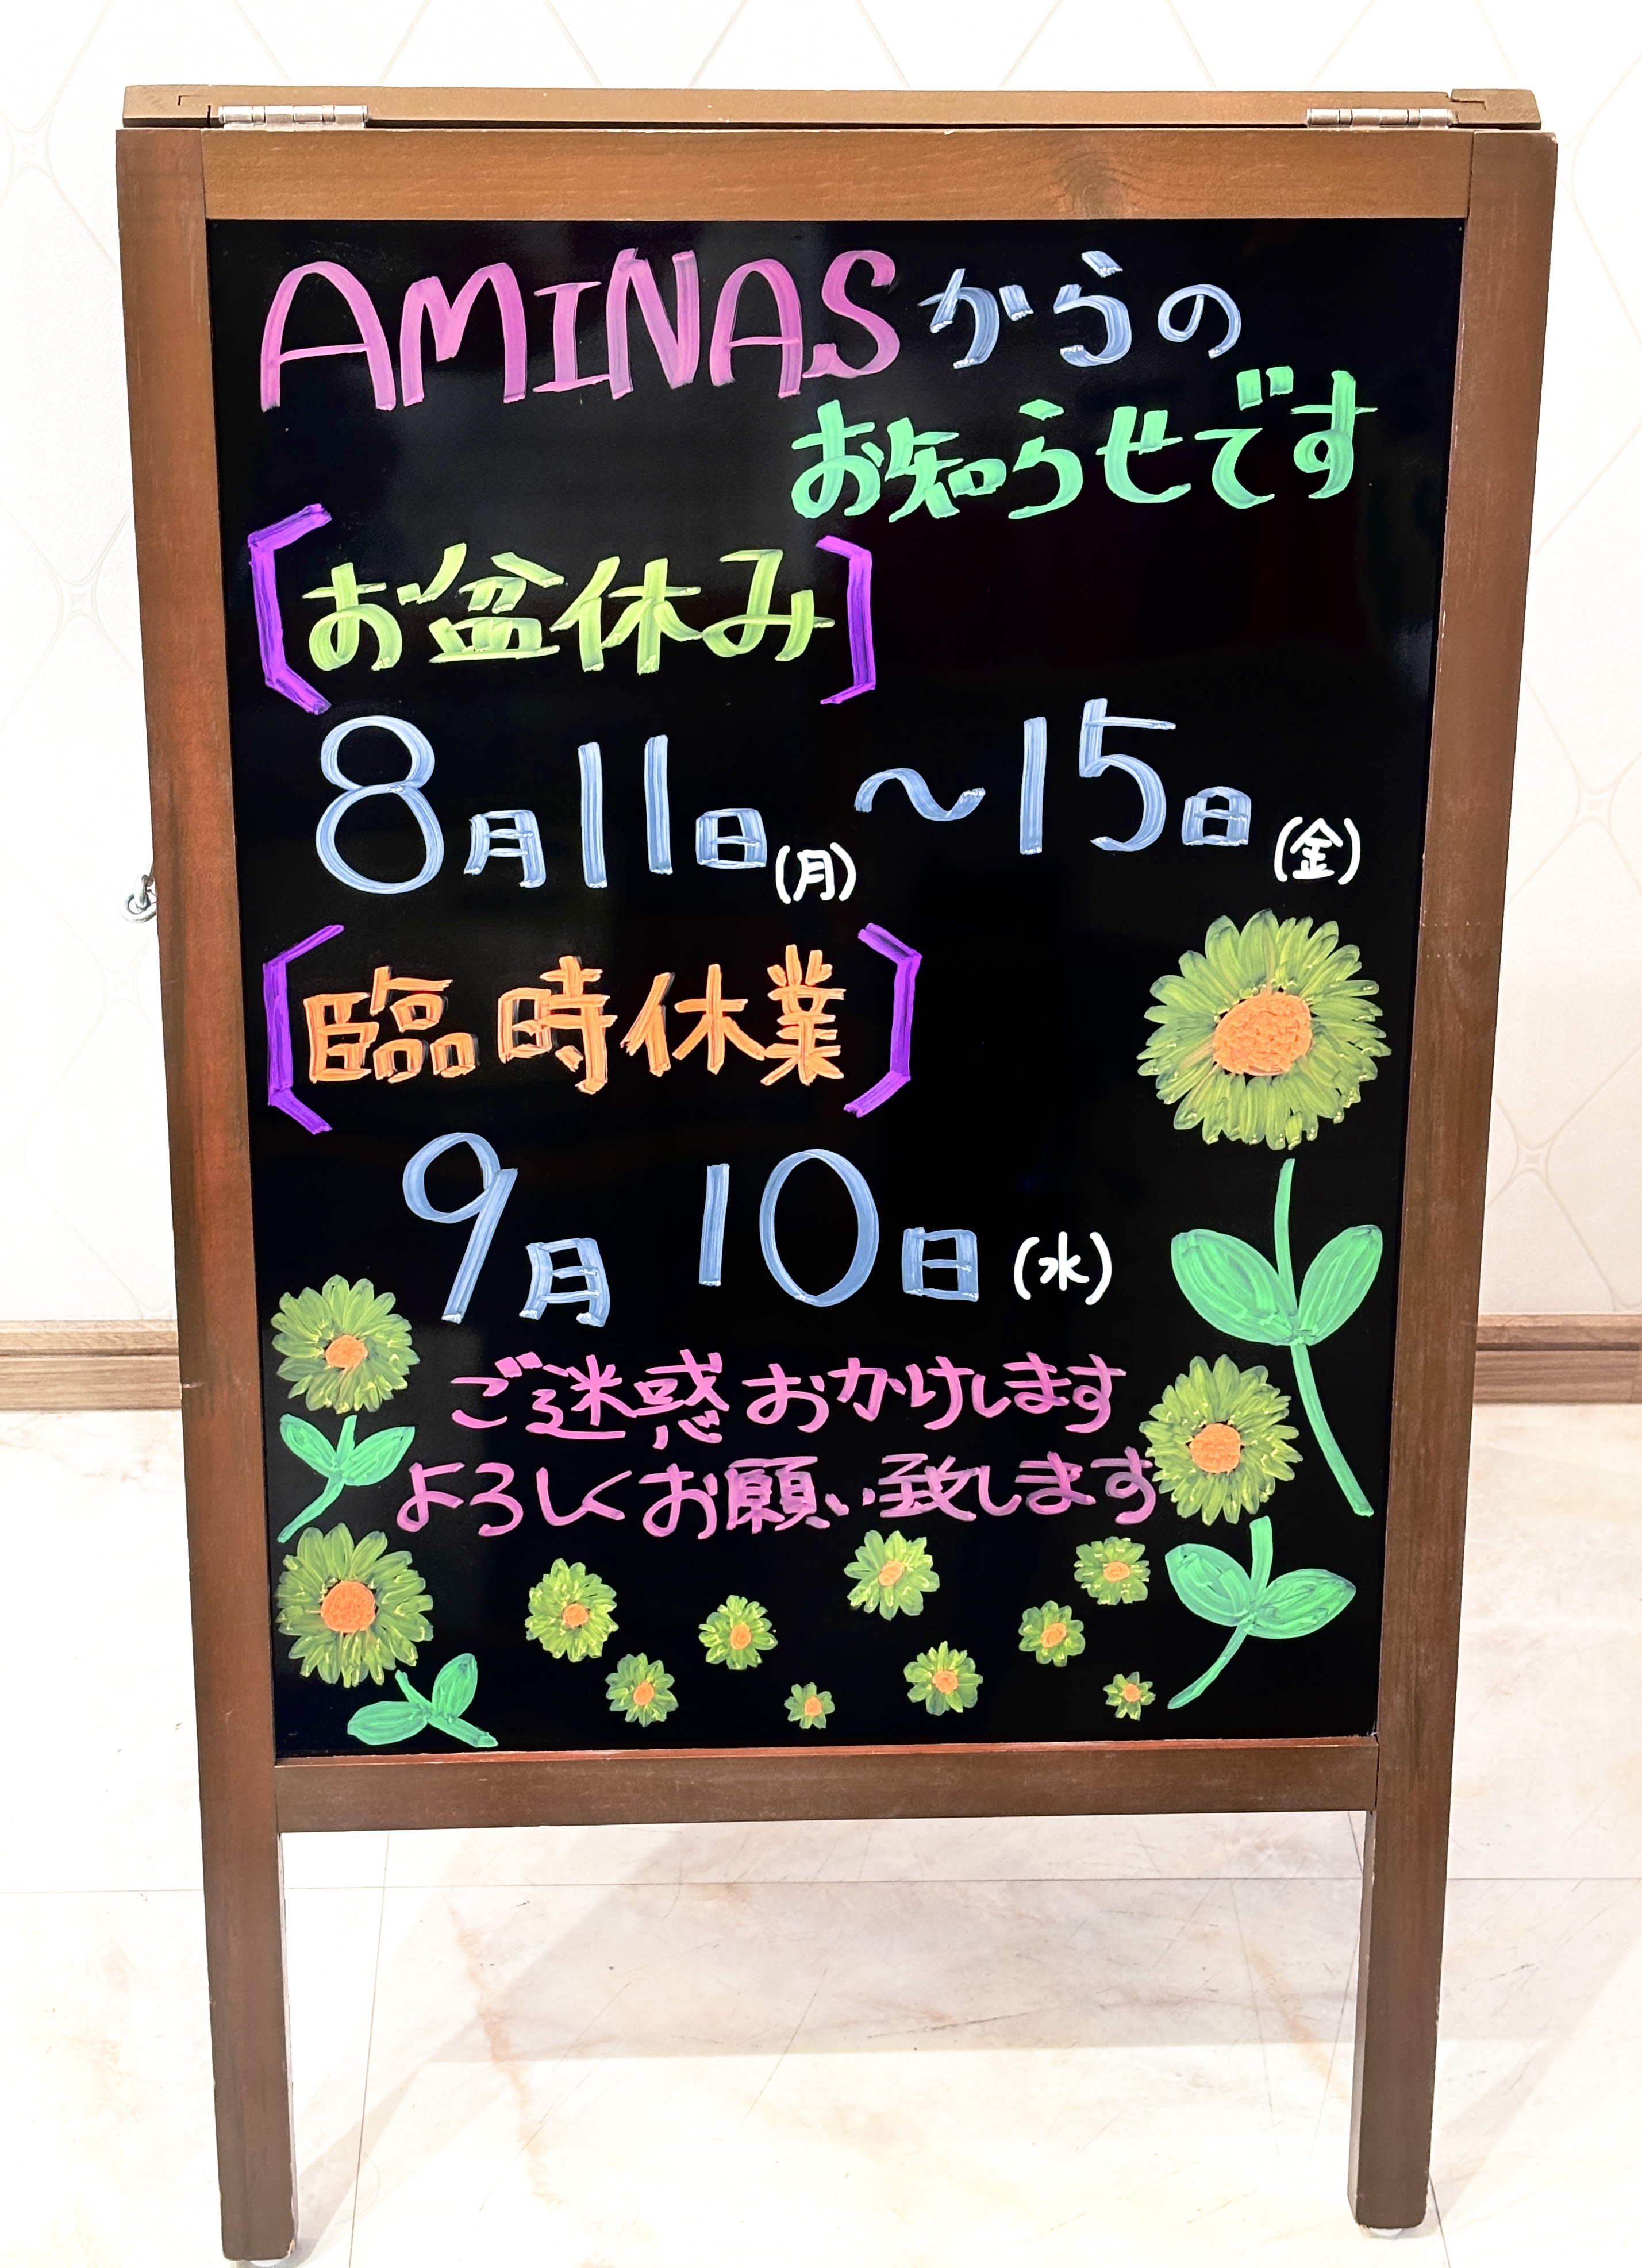 AMINASからの
お知らせです
[お盆休み]
8月11日(月)～15日(金)
[臨時休業]
9月10日(水)
ご迷惑おかけします
よろしくお願い致します